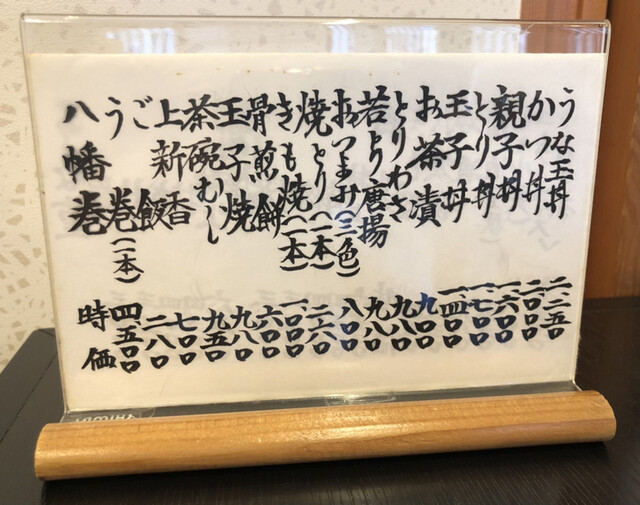 うな玉丼 二二五〇
かつ丼
親子丼 一六〇〇
とり丼 一七〇〇
玉子丼 一四〇〇
お茶漬 九〇〇
とりわさ 九八〇
若とり唐揚 九八〇
おつまみ(三色) 八〇〇
焼とり(一本) 二六〇
きも焼(一本)
骨煎餅 六〇〇
玉子焼 九八〇
茶碗むし 九五〇
上新香 七〇〇
ご飯 二八〇
う巻(一本) 四五〇〇
八幡巻 時価